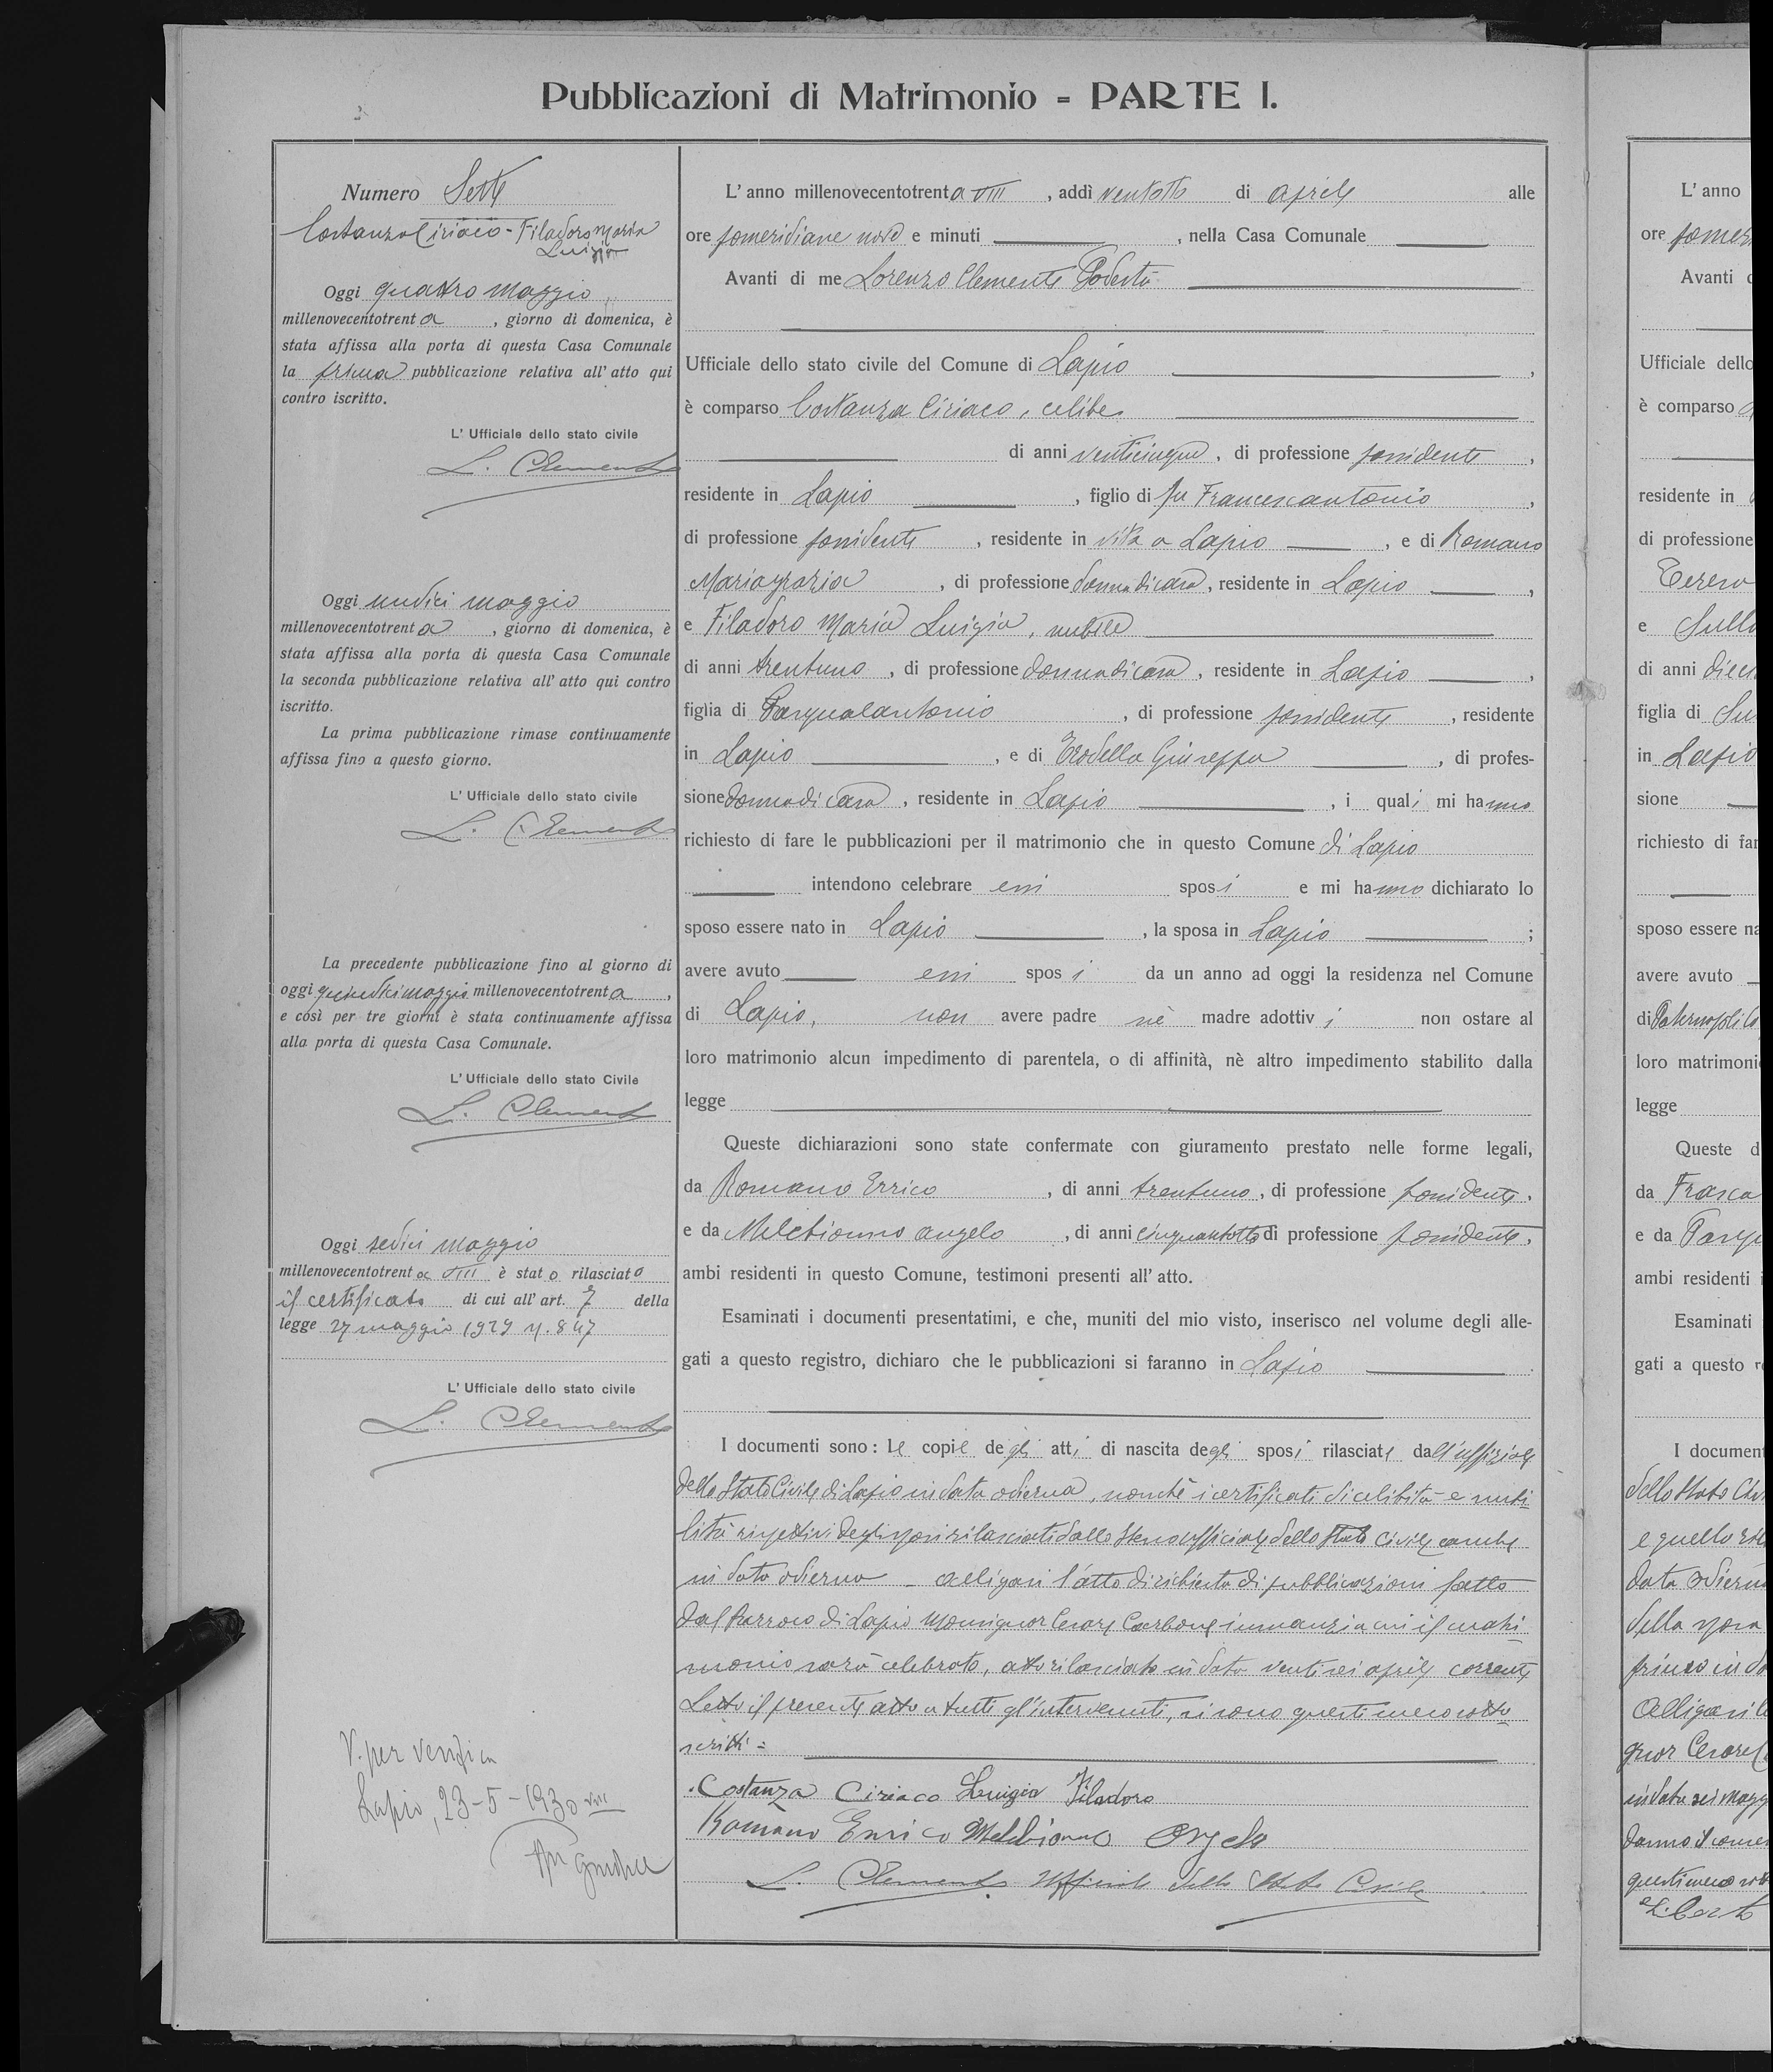 Pubblicazioni di Matrimonio = PARTE I.
Numero Sette
Costanza Ciriaco - Filadoro Maria
Luigia
Oggi quattro maggio,
millenovecentotrenta, giorno di domenica, è
stata affissa alla porta di questa Casa Comunale
la prima pubblicazione relativa all' atto qui
contro iscritto.
L' Ufficiale dello stato civile
L. Clemente
Oggi undici maggio
millenovecentotrenta, giorno di domenica, è
stata affissa alla porta di questa Casa Comunale
la seconda pubblicazione relativa all' atto qui contro
iscritto.
La prima pubblicazione rimase continuamente
affissa fino a questo giorno.
L' Ufficiale dello stato civile
L. Clemente
La precedente pubblicazione fino al giorno di
oggi quindici maggio millenovecentotrenta,
e così per tre giorni è stata continuamente affissa
alla porta di questa Casa Comunale.
L' Ufficiale dello stato Civile
L. Clemente
Oggi sedici maggio
millenovecentotrenta VIII è stato rilasciato
il certificato di cui all' art. 7 della
legge 27 maggio 1929 n. 847
L' Ufficiale dello stato civile
L. Clemente
V. per verifica
Lapio, 23-5-1930 VIII
L' anno millenovecentotrenta VIII, addì ventotto di aprile alle
ore pomeridiane nove e minuti, nella Casa Comunale
Avanti di me Lorenzo Clemente Podestà
Ufficiale dello stato civile del Comune di Lapio,
è comparso Costanza Ciriaco, celibe
di anni venticinque, di professione possidente,
residente in Lapio, figlio di fu Francescantonio,
di professione possidente, residente in vita a Lapio, e di Romano
Mariagrazia, di professione donna di casa, residente in Lapio,
e Filadoro Maria Luigia, nubile
di anni trentuno, di professione donna di casa, residente in Lapio,
figlia di Pasqualantonio, di professione possidente, residente
in Lapio, e di Giuseppa, di profes-
sione donna di casa, residente in Lapio, i quali mi hanno
richiesto di fare le pubblicazioni per il matrimonio che in questo Comune di Lapio
intendono celebrare essi sposi e mi hanno dichiarato lo
sposo essere nato in Lapio, la sposa in Lapio;
avere avuto essi sposi da un anno ad oggi la residenza nel Comune
di Lapio, non avere padre nè madre adottivi non ostare al
loro matrimonio alcun impedimento di parentela, o di affinità, nè altro impedimento stabilito dalla
legge
Queste dichiarazioni sono state confermate con giuramento prestato nelle forme legali,
da Romano Errico, di anni trentuno, di professione possidente,
e da Melchionno Angelo, di anni cinquantotto di professione possidente,
ambi residenti in questo Comune, testimoni presenti all' atto.
Esaminati i documenti presentatimi, e che, muniti del mio visto, inserisco nel volume degli alle-
gati a questo registro, dichiaro che le pubblicazioni si faranno in Lapio.
I documenti sono: le copie degli atti di nascita degli sposi rilasciate dall'uffiziale
dello Stato Civile di Lapio in data odierna, nonchè i certificati di celibità e nubi
lità rispettivi degli sposi rilasciati dallo stesso ufficiale dello Stato Civile
in data odierna - alligasi l'atto di richiesta di pubblicazioni fatto
dal Parroco di Lapio Monsignor Cesare Carbone innanzi a cui il matri-
monio sarà celebrato, atto rilasciato in data ventisei aprile corrente
Letto il presente atto a tutti gl'intervenuti, si sono questi meco sotto
scritti =
Costanza Ciriaco Luigia Filadoro
Romano Enrico Melchionno Angelo
L. Clemente Ufficiale dello Stato Civile
L' anno
ore
Avanti
Ufficiale dello
è comparso
residente in
di professione
e
di anni
figlia di
in Lapio
sione
richiesto di far
sposo essere na
avere avuto
di
loro matrimoni
legge
Queste d
da
e da
ambi residenti
Esaminati
gati a questo r
I document
dello Stato Civ